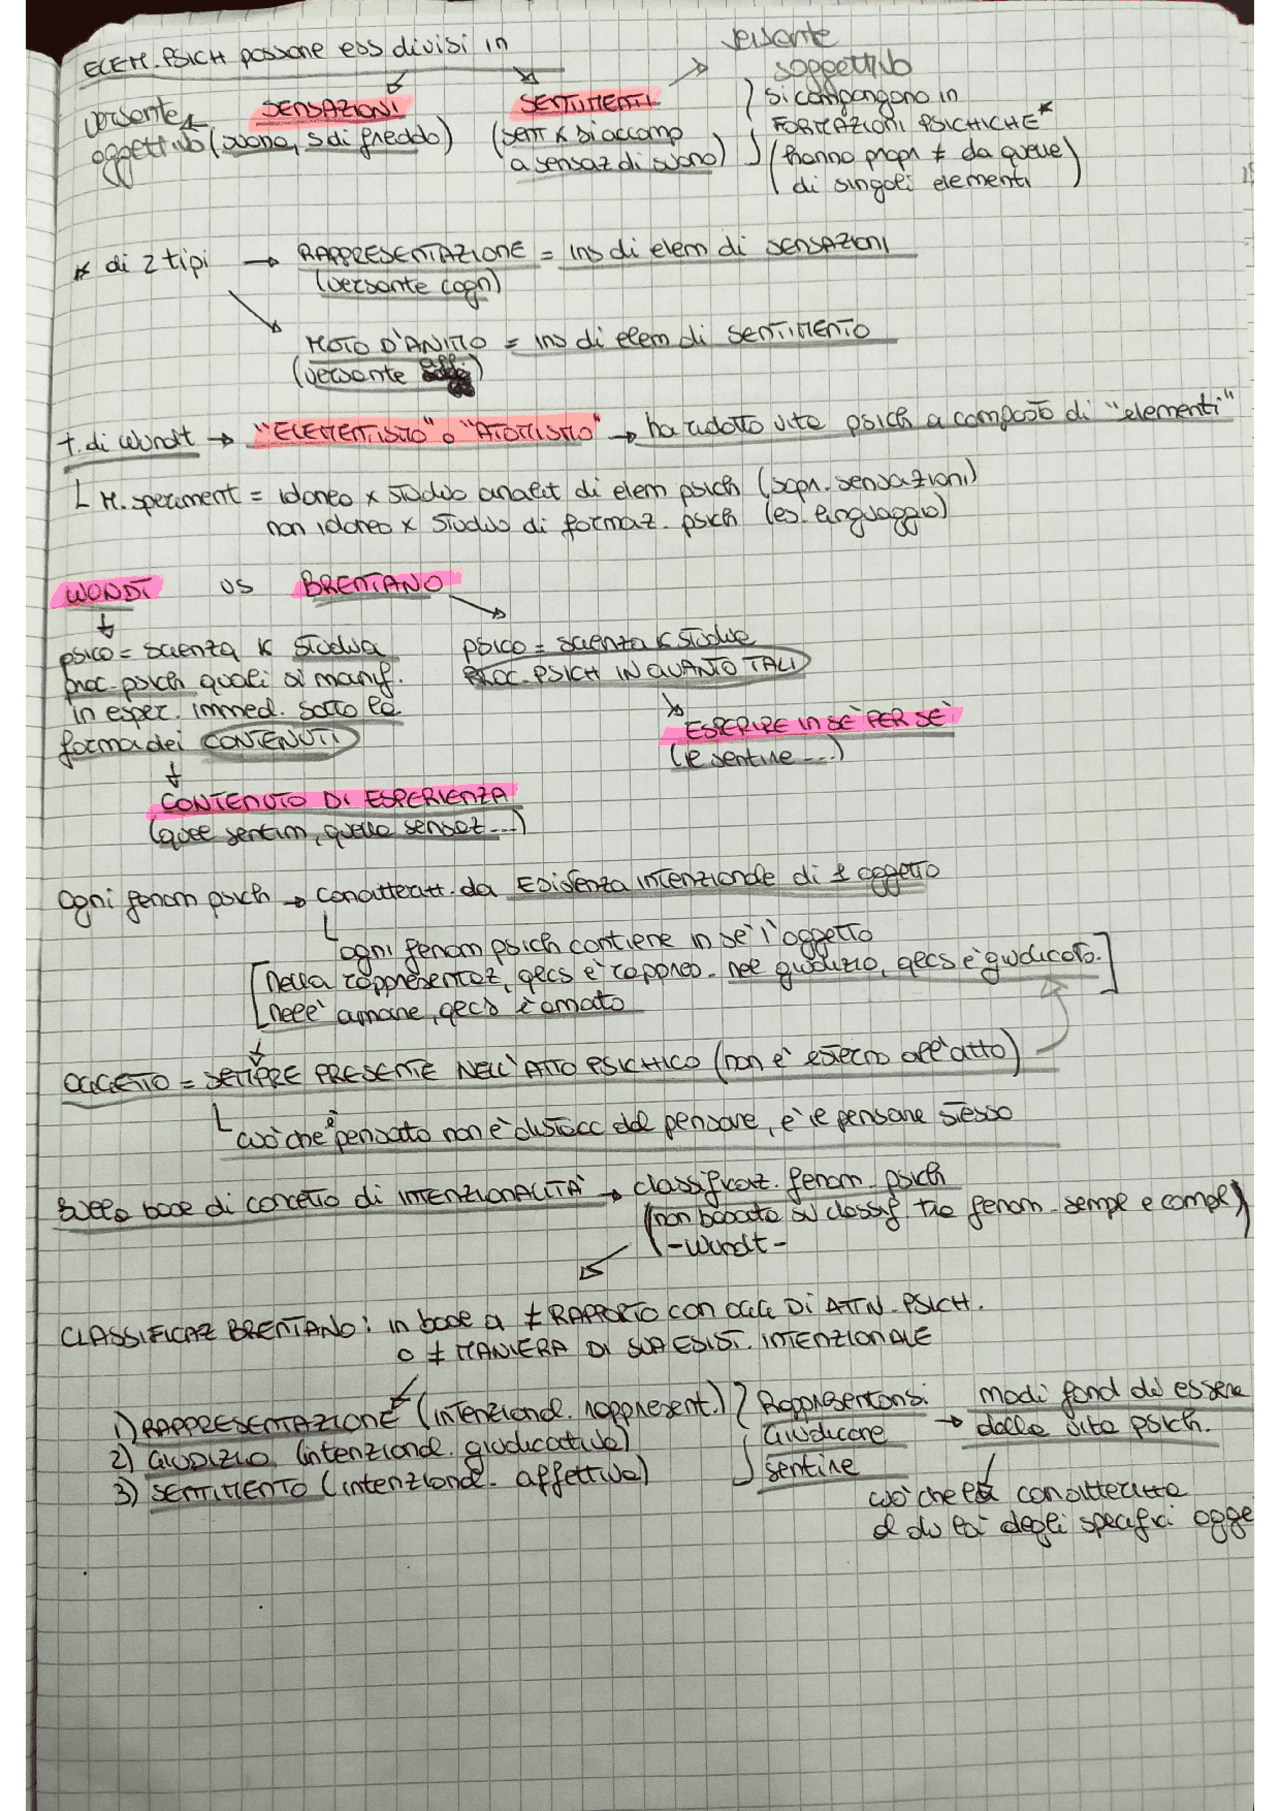 ELEM. PSICH possono ess divisi in
versante soggettivo
versante oggettivo
SENSAZIONI
(suono, s di freddo)
SENTIMENTI
(sent k si accomp
a sensaz di suono)
si compongono in
FORMAZIONI PSICHICHE*
(hanno propr ≠ da quelle
di singoli elementi)
* di 2 tipi → RAPPRESENTAZIONE = ins di elem di SENSAZIONI
(versante cogn)
MOTO D'ANIMO = ins di elem di SENTIMENTO
(versante
t. di Wundt → "ELEMENTISMO" o "ATOMISMO" → ha ridotto vita psich a composto di "elementi"
M. speriment = idoneo x studio analit di elem psich (sopr. sensazioni)
non idoneo x studio di formaz. psich (es. linguaggio)
WUNDT vs BRENTANO
psico = scienza k studia
proc. psich quali si manif.
in esper. immed. sotto la
forma dei CONTENUTI
CONTENUTO DI ESPERIENZA
(quel sentim, quella sensaz...)
psico = scienza k studia
PROC. PSICH IN QUANTO TALI
ESPERIRE IN SE' PER SE'
(il sentire ...)
Ogni fenom psich → caratteratt. da Esistenza intenzionale di 1 oggetto
ogni fenom psich contiene in se' l'oggetto
[Nella rappresentaz, qlcs è rappres. nel giudizio, qlcs è giudicato.
nell' amare, qlcs è amato]
OGGETTO = SEMPRE PRESENTE NELL'ATTO PSICHICO (non e' esterno all'atto)
ciò che è pensato non è distacc dal pensare, è il pensare stesso
Sulla base di concetto di INTENZIONALITA' → classificaz. fenom. psich
(non basata su classif tra fenom. sempl e compl)
- Wundt -
CLASSIFICAZ BRENTANO: in base a ≠ RAPPORTO CON OGG DI ATTIV. PSICH.
o ≠ MANIERA DI SUA ESIST. INTENZIONALE
1) RAPPRESENTAZIONE (intenzional. rappresent.)
2) GIUDIZIO (intenzional. giudicativa)
3) SENTIMENTO (intenzional. affettiva)
Rappresentarsi
Giudicare
sentire
→ modi fond di essere
della vita psich.
ciò che la caratterizza
al di là degli specifici ogge